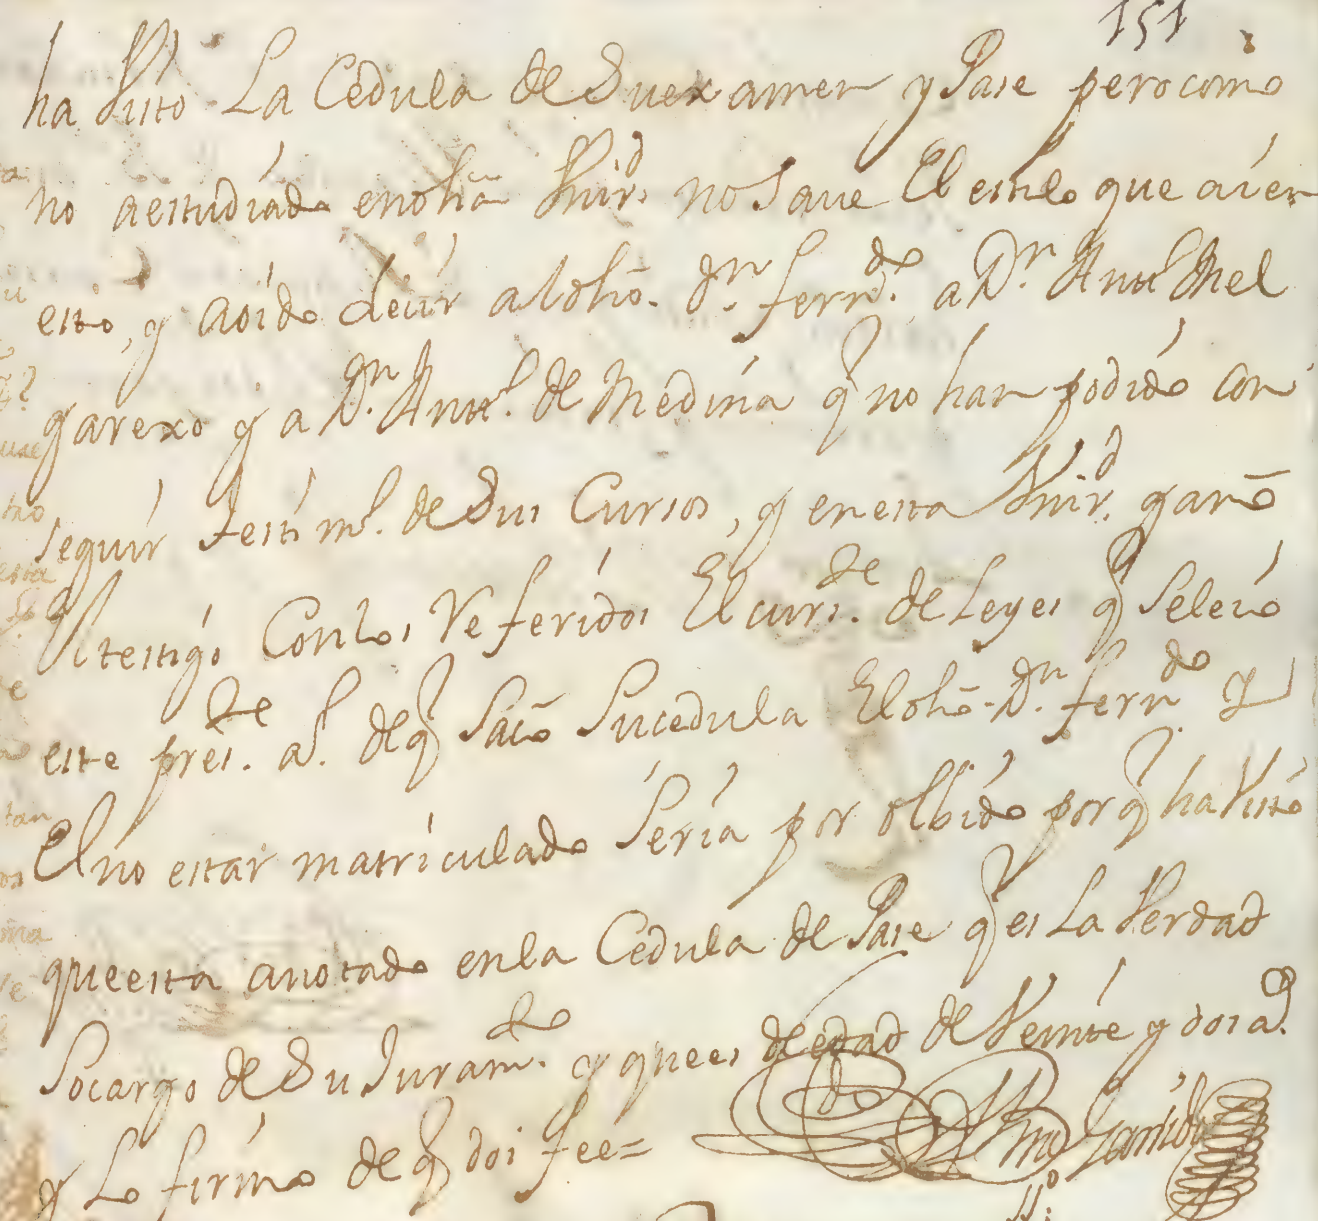 151
ha visto La Cedula de Su examen y Pase pero como
no a estudiado en dha Vnird. no Save El estilo que ai en
esto, y a oido decir al dho. Dn. ferndo. a Dn. Antto. Mel
garexo y a Dn. Antto. de Medina q no han podido con
seguir testimo. de Sus Cursos, y en esta Vnird. ganô
El testigo Con los Referidos El curste. de Leyes q Se leió
este preste. as. de q Sacô Su cedula El dho. Dn. ferndo y
El no estar matriculado Sería por olbido por q ha Visto
que esta anotado en la Cedula de Pase q es La Verdad
So cargo de Su Juramdo. y que es de edad de Veinte y dos as.
y Lo firmô de q doi fee=
Garrido